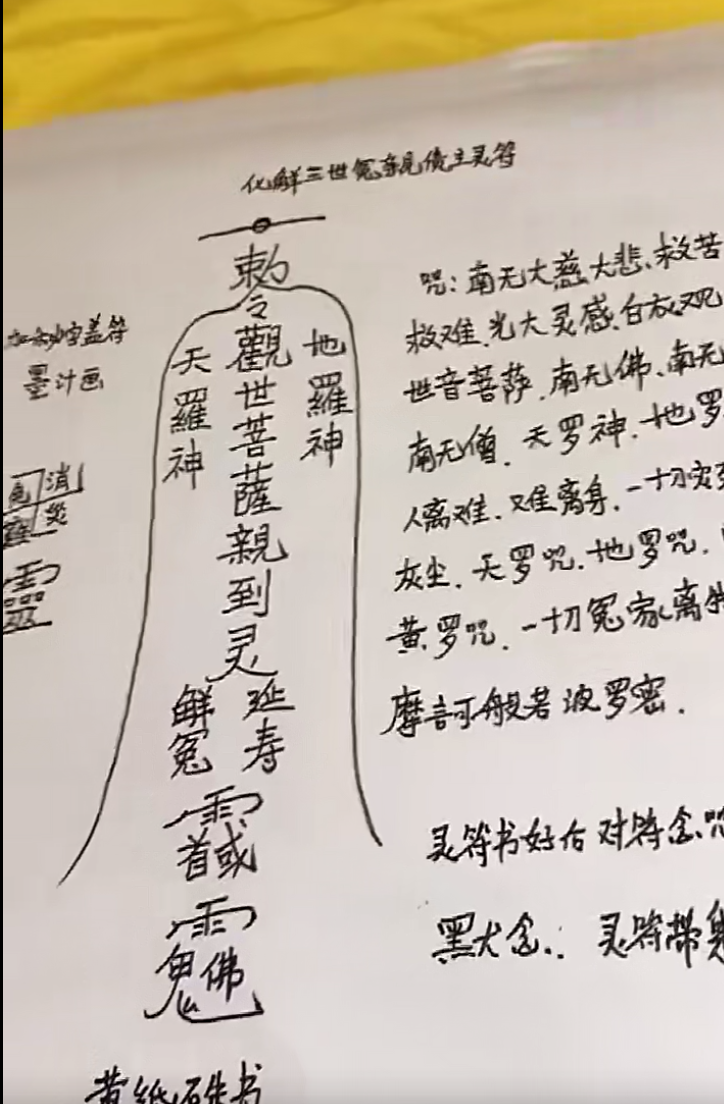 化解三世冤亲债主灵符
勅
令
觀世菩薩親到灵
天羅神
地羅神
解冤
延寿
佛
盖符
墨计画
消
災
靈
咒：南无大慈大悲、救苦
救难．光大灵感．白衣观
世音菩萨．南无佛、南无
南无僧．天罗神．地罗
人离难．难离身．一切灾
灰尘．天罗咒．地罗咒．
黄罗咒．一切冤家离
摩訶般若波罗密．
灵符书好后对符念咒
灵符带
黄纸硃书